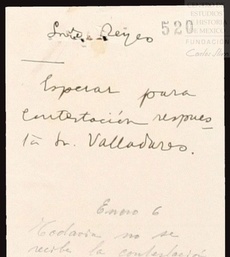 520
ESTUDIOS
DE HISTORIA
DE MEXICO
FUNDACIÓN
Carlos
Srita. Reyes
Esperar para
contestación respues
ta Sr. Valladares.
Enero 6
Todavía no se
recibe la contestación